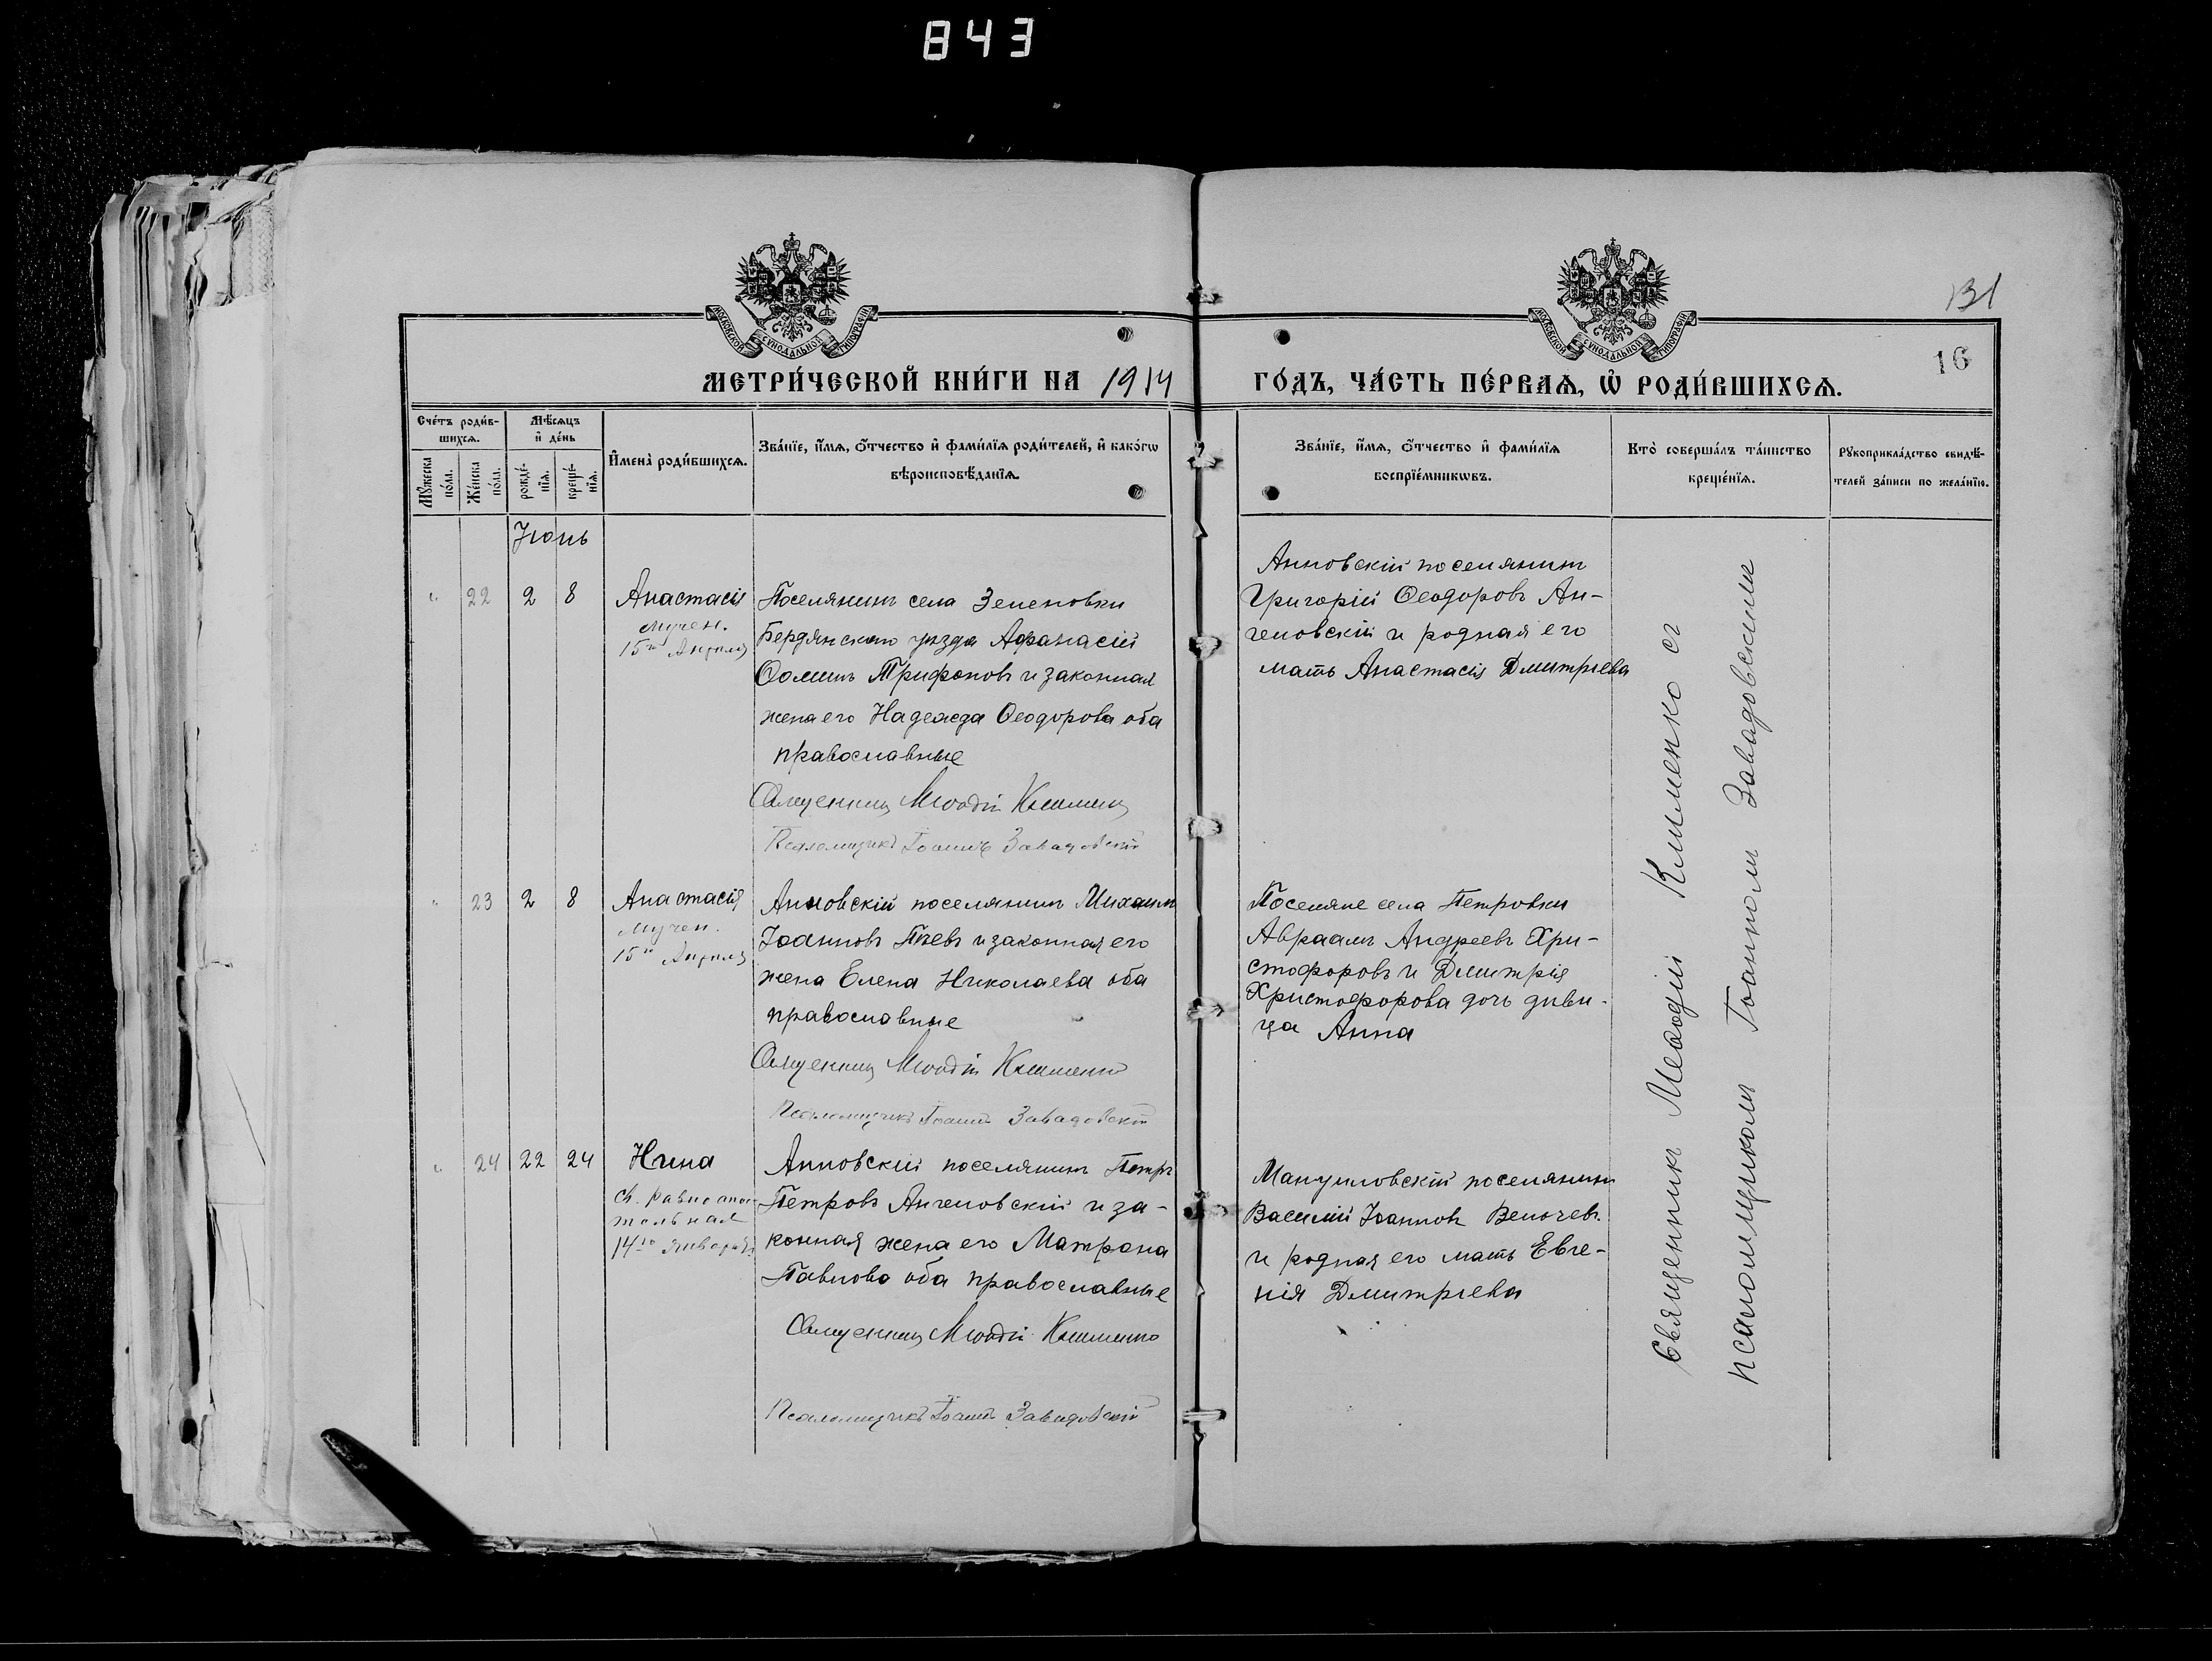 843
131
16
МОСКОВСКОЙ СѴНОДАЛЬНОЙ ТИПОГРАФІИ
МОСКОВСКОЙ СѴНОДАЛЬНОЙ ТИПОГРАФІИ
МЕТРИ́ЧЕСКОЙ КНИ́ГИ НА 1914 ГО́ДЪ, ЧА́СТЬ ПЕ́РВАѦ, Ѡ҆ РОДИ́ВШИХСѦ.
Сче́тъ роди́в-
шихсѧ.
Мꙋ́жеска
по́ла.
Же́нска
по́ла.
Мѣ́сѧцъ
и҆ де́нь
рожде́-
нїѧ.
креще́-
нїѧ.
И҆мена̀ роди́вшихсѧ.
Зва́нїе, и҆́мѧ, ѻ҆́тчество и҆ фами́лїѧ роди́телей, и҆ како́гѡ
вѣроисповѣ́данїѧ.
Зва́нїе, и҆́мѧ, ѻ҆́тчество и҆ фами́лїѧ
воспрїе́мникѡвъ.
Кто̀ соверша́лъ та́инство
креще́нїѧ.
Рꙋкоприкла́дство свидѣ́-
телей за́писи по жела́нїю.
Іюнь
" 22 2 8 Анастасія
мучен.
15го Апрѣля
Поселянинъ села Зеленовки
Бердянскаго уѣзда Аѳанасій
Ѳоминъ Трифоновъ и законная
жена его Надежда Ѳеодорова оба
православные
Священникъ Меѳодій Клименко
Псаломщикъ Іоаннъ Завадовскій
Анновскій поселянинъ
Григорій Ѳеодоровъ Ан-
геловскій и родная его
мать Анастасія Дмитріева
" 23 2 8 Анастасія
мучен.
15го Апрѣля
Анновскій поселянинъ Михаилъ
Іоанновъ Пѣевъ и законная его
жена Елена Николаева оба
православные
Священникъ Меѳодій Клименко
Псаломщикъ Іоаннъ Завадовскій
Поселяне села Петровки
Авраамъ Андреевъ Хри-
стофоровъ и Дмитрія
Христофорова дочь дѣви-
ца Анна
" 24 22 24 Нина
св. равноапос-
тольная
14го Января
Анновскій поселянинъ Петръ
Петровъ Ангеловскій и за-
конная жена его Матрона
Павлова оба православные
Священникъ Меѳодій Клименко
Псаломщикъ Іоаннъ Завадовскій
Мануиловскій поселянинъ
Василій Іоанновъ Велочевъ
и родная его мать Евге-
нія Дмитріева
Священникъ Меѳодій Клименко съ
псаломщикомъ Іоанномъ Завадовскимъ